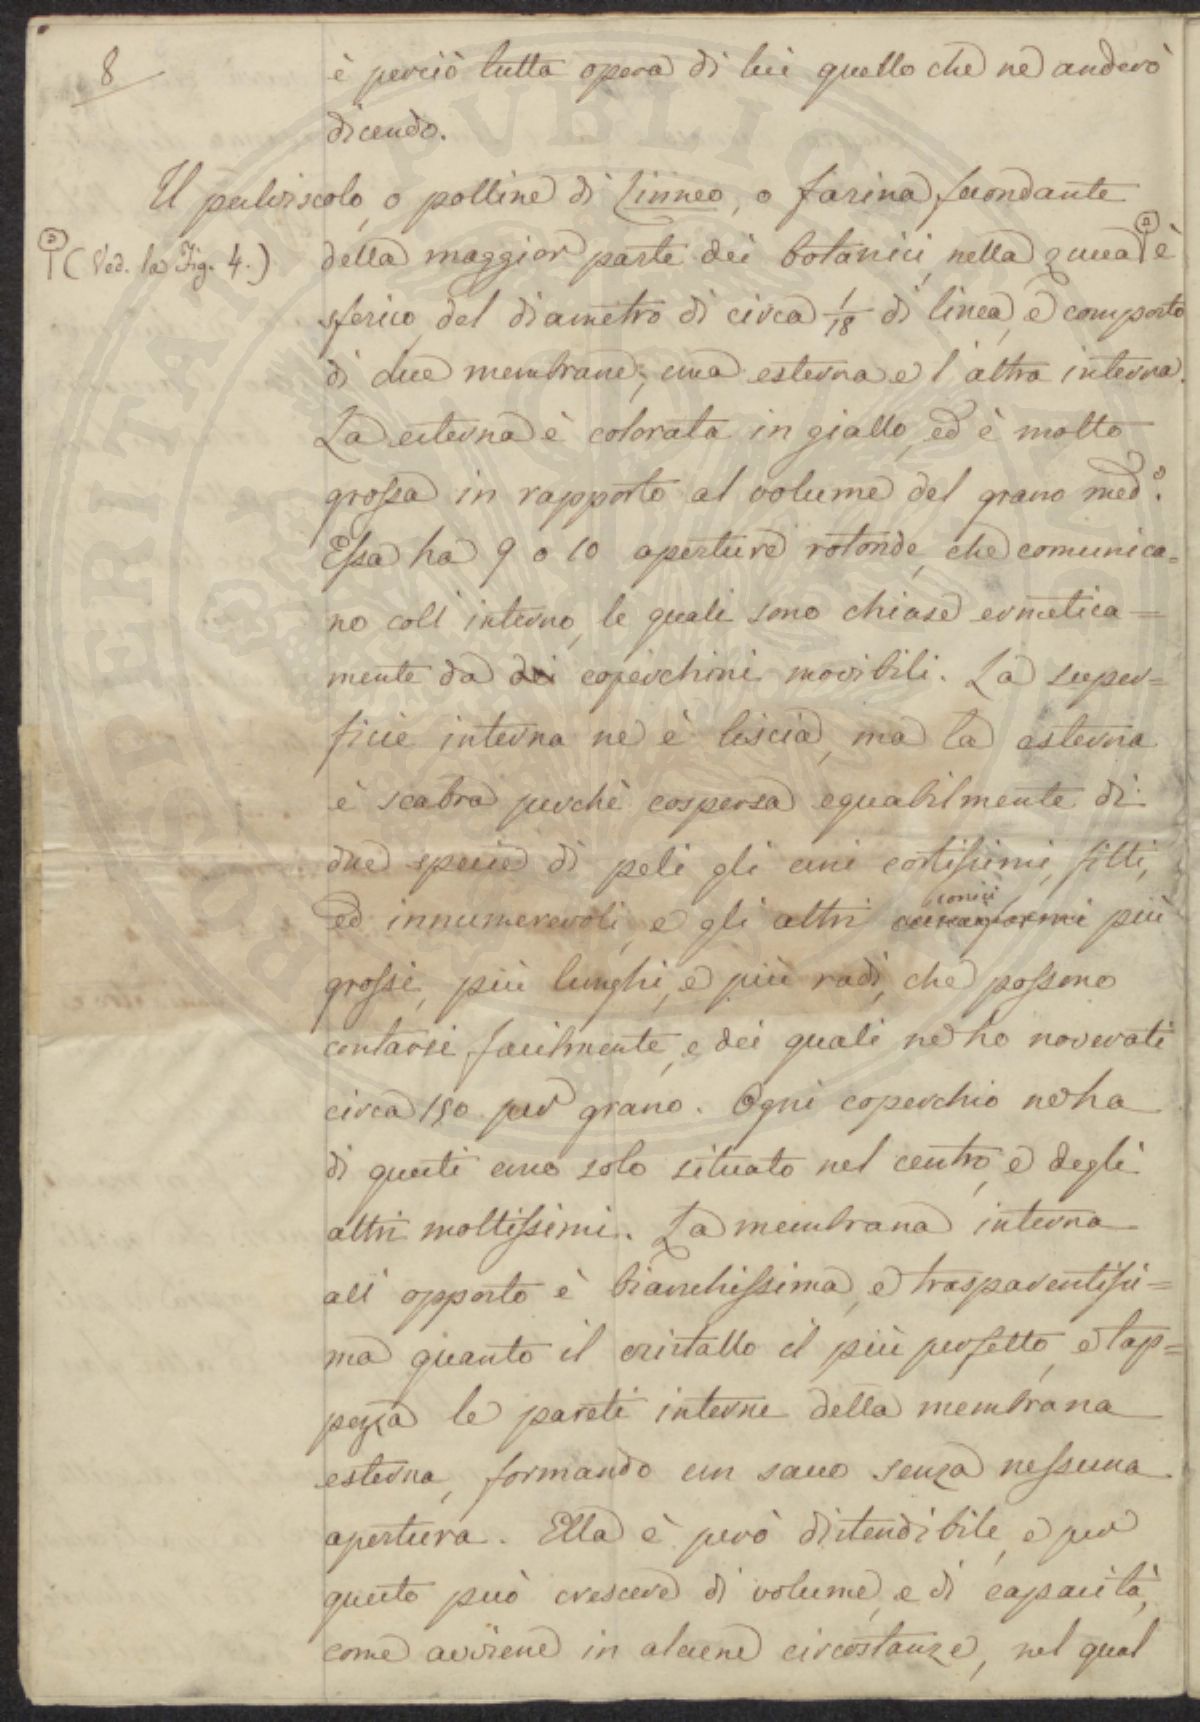 8
è perciò tutta opera di lui quello che ne anderò
dicendo.
Il pulviscolo, o polline di Linneo, o farina fecondante
(Ved. la Fig. 4.)
della maggior parte dei botanici, nella zucca è
sferico, del diametro di circa 1/18 di linea, e composto
di due membrane, una esterna e l'altra interna.
La esterna è colorata in giallo, ed è molto
grossa in rapporto al volume del grano med.º
Essa ha 9 o 10 aperture rotonde, che comunica=
no coll'interno, le quali sono chiase ermetica=
mente da dei coperchini movibili. La super=
ficie interna ne è liscia, ma la esterna
è scabra perchè cospersa egualmente di
due specie di peli gli uni cortissimi, fitti,
ed innumerevoli, e gli altri conici più
grossi, più lunghi, e più radi, che possono
contarsi facilmente, e dei quali ne ho noverati
circa 150 per grano. Ogni coperchio ne ha
di questi uno solo situato nel centro, e degli
altri moltissimi. La membrana interna
all'opposto è bianchissima, e trasparentissi=
ma quanto il cristallo il più perfetto, e tap=
pezza le pareti interne della membrana
esterna, formando un sacco senza nessuna
apertura. Ella è però distendibile, e per
questo può crescere di volume, e di capacità,
come avviene in alcune circostanze, nel qual
PERITAT PUBLIC